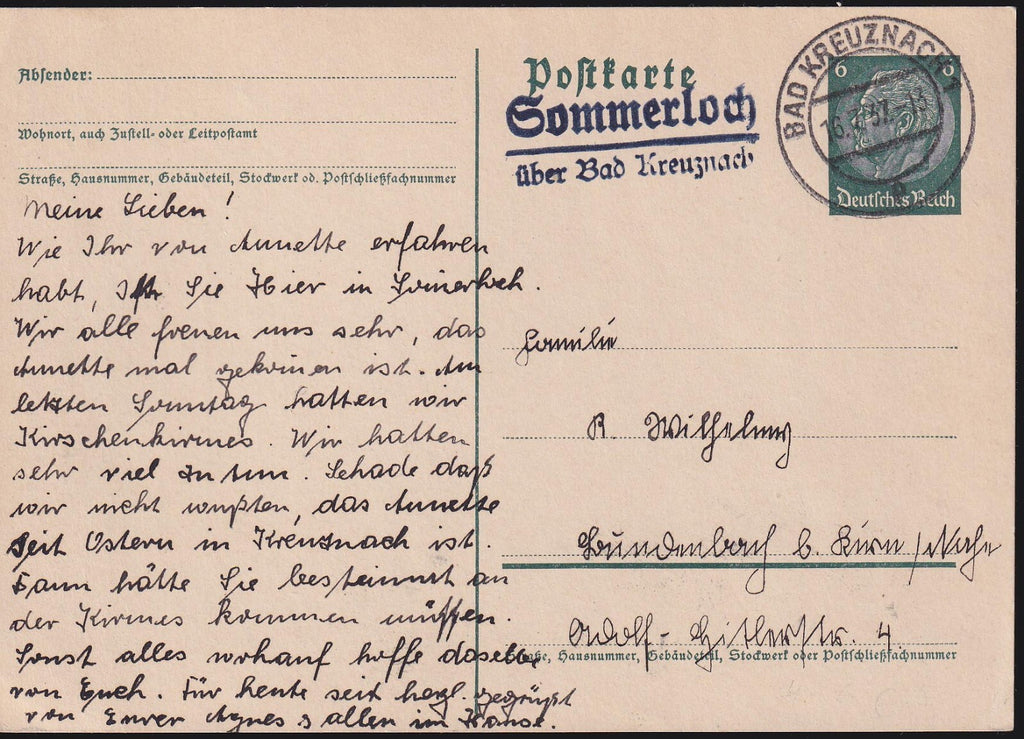 Absender:
Wohnort, auch Zustell- oder Leitpostamt
Straße, Hausnummer, Gebäudeteil, Stockwerk od. Postschließfachnummer
Meine Lieben!
Wie Ihr von Annette erfahren
habt, Ist Sie Hier in Somerloch.
Wir alle freuen uns sehr, das
Annette mal gekomen ist. Am
letzten Sonntag hatten wir
Kirschenkirmes. Wir hatten
sehr viel zu tun. Schade daß
wir nicht wußten, das Annette
seit Ostern in Kreuznach ist.
Dann hätte Sie bestimmt an
der Kirmes kommen müssen.
Sonst alles wohauf hoffe dasselb.
von Euch. Für heute seit herzl. gegrüßt
von Eurer Agnes s allen im Hause.
Postkarte
Sommerloch
über Bad Kreuznach
BAD KREUZNACH 1
16. 37. 13
6 6
Deutsches Reich
Familie
R. Wilhelmy
Bundenbach b. Kirn /Nahe
Adolf-Hitlerstr. 4.
Straße, Hausnummer, Gebäudeteil, Stockwerk oder Postschließfachnummer